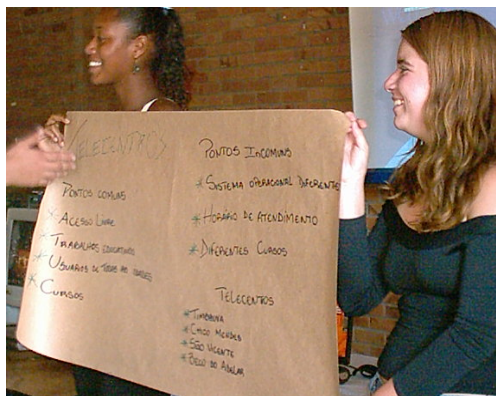 TELECENTROS
PONTOS COMUNS
* ACESSO LIVRE
* TRABALHOS EDUCATIVOS
* USUÁRIOS DE TODAS AS IDADES
* CURSOS
PONTOS INCOMUNS
* SISTEMA OPERACIONAL DIFERENTES
* HORÁRIO DE ATENDIMENTO
* DIFERENTES CURSOS
TELECENTOS
* TIMBAUVA
* CHICO MENDES
* SÃO VICENTE
* BECO DO ADELAR